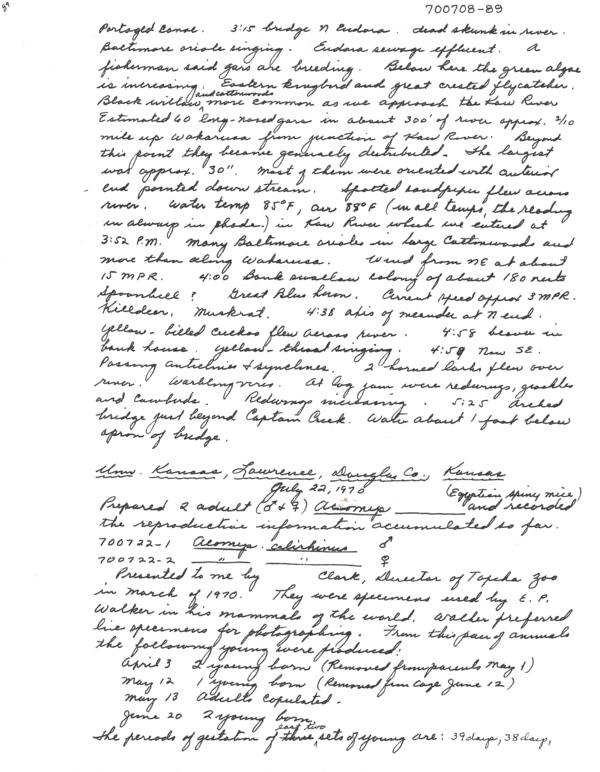 89
700708-89
Portaged canoe. 3:15 bridge N Eudora. dead skunk in river.
Baltimore oriole singing. Eudora sewage effluent. A
fisherman said gars are breeding. Below here the green algae
is increasing. Eastern kingbird and great crested flycatcher.
Black willow and cottonwoods more common as we approach the Kaw River
Estimated 60 long-nosed gars in about 300' of river approx. 2/10
mile up Wakarusa from junction of Kaw River. Beyond
this point they became generally distributed. The largest
was approx. 30". Most of them were oriented with anterior
end pointed down stream. Spotted sandpiper flew across
river. Water temp 85°F, air 88°F (in all temps, the reading
in always in shade.) in Kaw River which we entered at
3:52 P.M. Many Baltimore orioles in large Cottonwoods and
more than along Wakarusa. Wind from NE at about
15 MPR. 4:00 Bank swallow colony of about 180 nests
Spoonbill? Great Blue heron. Current speed approx 3 MPR.
Killdeer, Muskrat. 4:38 apis of meander at N end.
Yellow-billed cuckoo flew across river. 4:58 beaver in
bank house. Yellow-throat singing. 4:59 Now SE.
Passing anticlines & synclines. 2 horned larks flew over
river. Warbling vireo. At log jam were redwings, grackles
and Cowbirds. Redwings increasing. 5:25 Arched
bridge just beyond Captain Creek. Water about 1 foot below
apron of bridge.
Univ. Kansas, Lawrence, Douglas Co., Kansas
July 22, 1970 (Egyptian spiny mice)
Prepared 2 adult (♂ & ♀) Acomys ______ and recorded
the reproductive information accumulated so far.
700722-1 Acomys cahirhinus ♂
700722-2 " " ♀
Presented to me by Clark, Director of Topeka Zoo
in March of 1970. They were specimens used by E. P.
Walker in his mammals of the world. Walker preferred
live specimens for photographing. From this pair of animals
the following young were produced:
April 3 2 young born (Removed from parents May 1)
May 12 1 young born (Removed from cage June 12)
May 13 Adults copulated.
June 20 2 young born
The periods of gestation of three last two sets of young are: 39 days, 38 days,